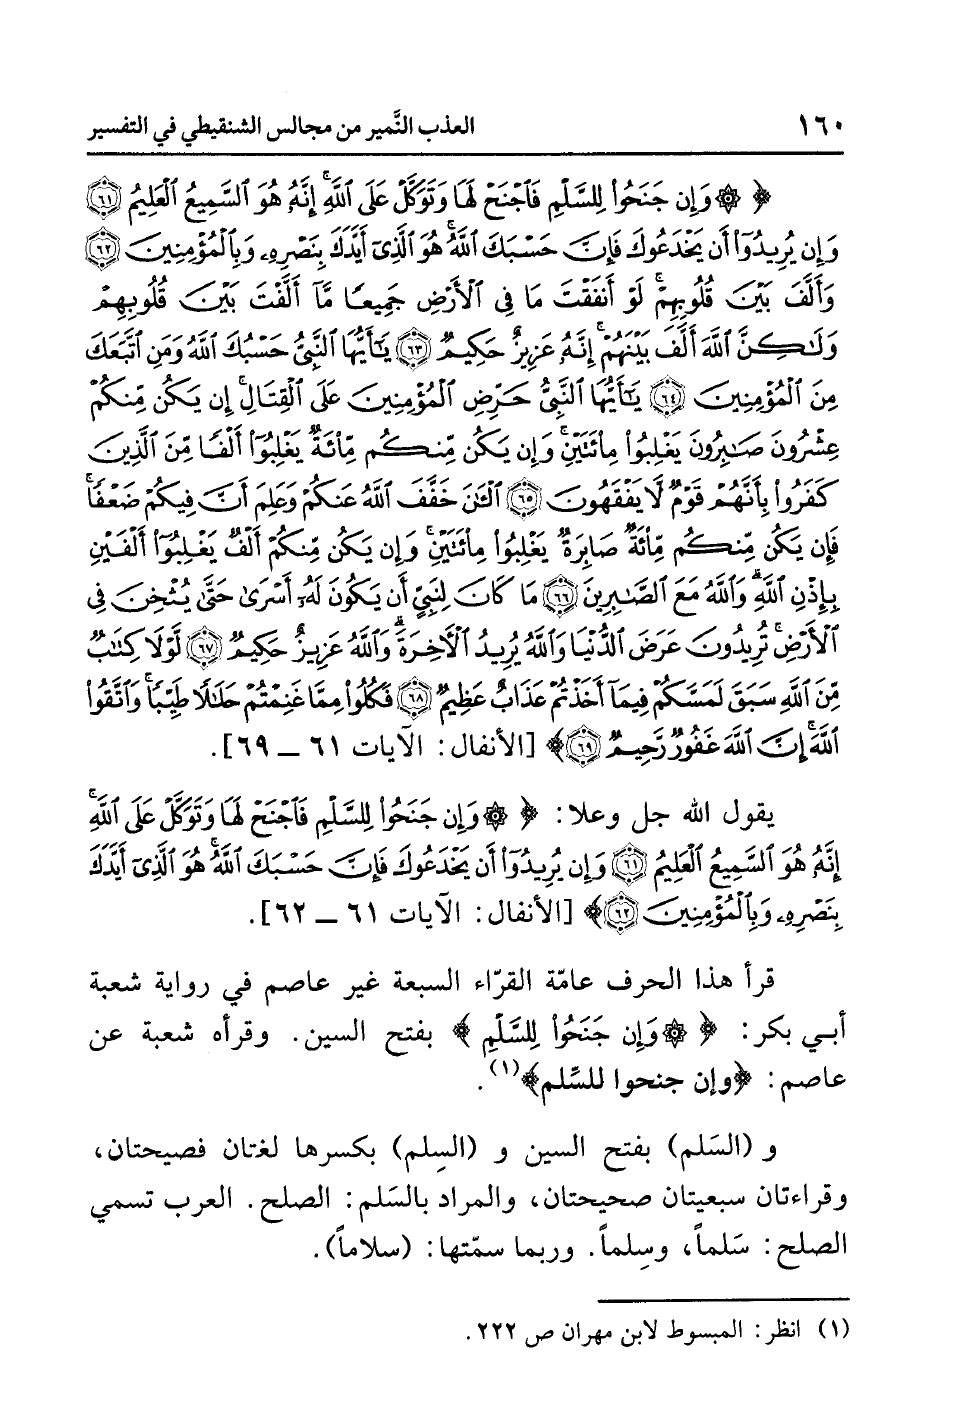 ١٦٠ العذب النَّمير من مجالس الشنقيطي في التفسير
﴿ ۞ وَإِن جَنَحُوا۟ لِلسَّلْمِ فَٱجْنَحْ لَهَا وَتَوَكَّلْ عَلَى ٱللَّهِ ۚ إِنَّهُۥ هُوَ ٱلسَّمِيعُ ٱلْعَلِيمُ ٦١
وَإِن يُرِيدُوٓا۟ أَن يَخْدَعُوكَ فَإِنَّ حَسْبَكَ ٱللَّهُ ۚ هُوَ ٱلَّذِىٓ أَيَّدَكَ بِنَصْرِهِۦ وَبِٱلْمُؤْمِنِينَ ٦٢
وَأَلَّفَ بَيْنَ قُلُوبِهِمْ ۚ لَوْ أَنفَقْتَ مَا فِى ٱلْأَرْضِ جَمِيعًا مَّآ أَلَّفْتَ بَيْنَ قُلُوبِهِمْ
وَلَٰكِنَّ ٱللَّهَ أَلَّفَ بَيْنَهُمْ ۚ إِنَّهُۥ عَزِيزٌ حَكِيمٌ ٦٣ يَٰٓأَيُّهَا ٱلنَّبِىُّ حَسْبُكَ ٱللَّهُ وَمَنِ ٱتَّبَعَكَ
مِنَ ٱلْمُؤْمِنِينَ ٦٤ يَٰٓأَيُّهَا ٱلنَّبِىُّ حَرِّضِ ٱلْمُؤْمِنِينَ عَلَى ٱلْقِتَالِ ۚ إِن يَكُن مِّنكُمْ
عِشْرُونَ صَٰبِرُونَ يَغْلِبُوا۟ مِا۟ئَتَيْنِ ۚ وَإِن يَكُن مِّنكُم مِّا۟ئَةٌ يَغْلِبُوٓا۟ أَلْفًا مِّنَ ٱلَّذِينَ
كَفَرُوا۟ بِأَنَّهُمْ قَوْمٌ لَّا يَفْقَهُونَ ٦٥ ٱلْـَٰٔنَ خَفَّفَ ٱللَّهُ عَنكُمْ وَعَلِمَ أَنَّ فِيكُمْ ضَعْفًا ۚ
فَإِن يَكُن مِّنكُم مِّا۟ئَةٌ صَابِرَةٌ يَغْلِبُوا۟ مِا۟ئَتَيْنِ ۚ وَإِن يَكُن مِّنكُمْ أَلْفٌ يَغْلِبُوٓا۟ أَلْفَيْنِ
بِإِذْنِ ٱللَّهِ ۗ وَٱللَّهُ مَعَ ٱلصَّٰبِرِينَ ٦٦ مَا كَانَ لِنَبِىٍّ أَن يَكُونَ لَهُۥٓ أَسْرَىٰ حَتَّىٰ يُثْخِنَ فِى
ٱلْأَرْضِ ۚ تُرِيدُونَ عَرَضَ ٱلدُّنْيَا وَٱللَّهُ يُرِيدُ ٱلْأَخِرَةَ ۗ وَٱللَّهُ عَزِيزٌ حَكِيمٌ ٦٧ لَّوْلَا كِتَٰبٌ
مِّنَ ٱللَّهِ سَبَقَ لَمَسَّكُمْ فِيمَآ أَخَذْتُمْ عَذَابٌ عَظِيمٌ ٦٨ فَكُلُوا۟ مِمَّا غَنِمْتُمْ حَلَٰلًا طَيِّبًا ۚ وَٱتَّقُوا۟
ٱللَّهَ ۚ إِنَّ ٱللَّهَ غَفُورٌ رَّحِيمٌ ٦٩ ﴾ [الأنفال: الآيات ٦١ ــ ٦٩].
يقول الله جل وعلا: ﴿ ۞ وَإِن جَنَحُوا۟ لِلسَّلْمِ فَٱجْنَحْ لَهَا وَتَوَكَّلْ عَلَى ٱللَّهِ ۚ
إِنَّهُۥ هُوَ ٱلسَّمِيعُ ٱلْعَلِيمُ ٦١ وَإِن يُرِيدُوٓا۟ أَن يَخْدَعُوكَ فَإِنَّ حَسْبَكَ ٱللَّهُ ۚ هُوَ ٱلَّذِىٓ أَيَّدَكَ
بِنَصْرِهِۦ وَبِٱلْمُؤْمِنِينَ ٦٢ ﴾ [الأنفال: الآيات ٦١ ــ ٦٢].
قرأ هذا الحرف عامّة القرّاء السبعة غير عاصم في رواية شعبة
أبي بكر: ﴿ ۞ وَإِن جَنَحُوا۟ لِلسَّلْمِ ﴾ بفتح السين. وقرأه شعبة عن
عاصم: ﴿وإن جنحوا للسِّلم﴾(١).
و (السَلم) بفتح السين و (السِلم) بكسرها لغتان فصيحتان،
وقراءتان سبعيتان صحيحتان، والمراد بالسَلم: الصلح. العرب تسمي
الصلح: سَلماً، وسِلماً. وربما سمّتها: (سلاماً).
(١) انظر: المبسوط لابن مهران ص ٢٢٢.